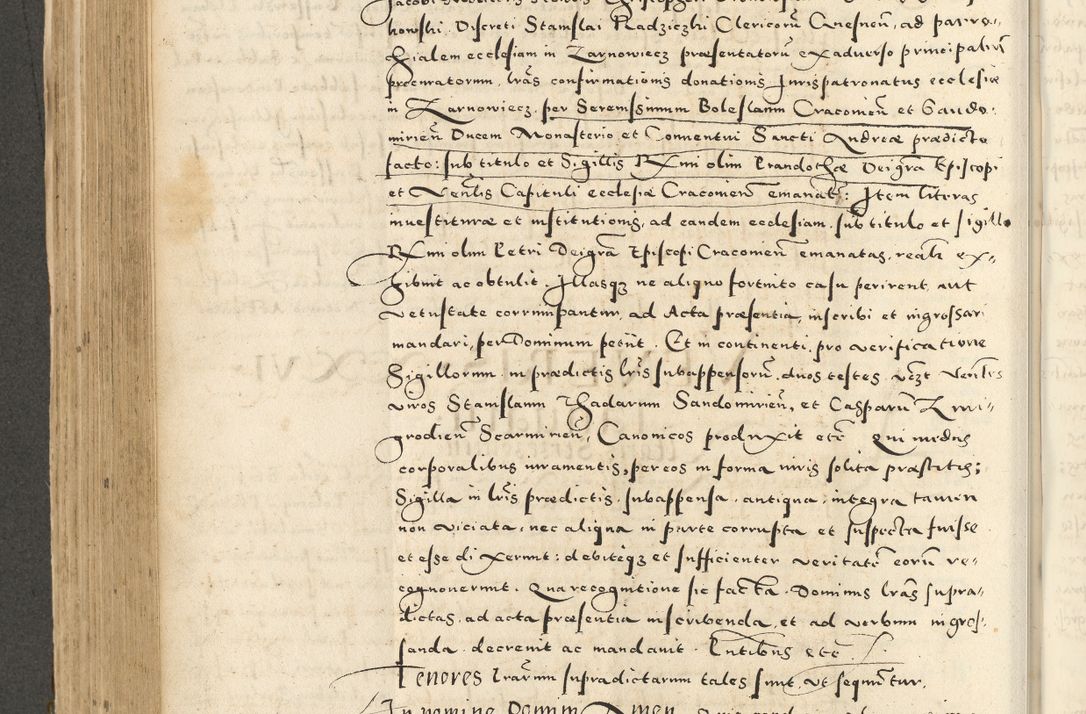 howski, Discreti Stanislai Radziczki Clericorū Gnesneñ, ad parro-
chialem ecclesiam in Zarnowiecz præsentatorū ex adverso principaliū
procuratorum, lr̃as confirmationis donationis Jurispatronatus ecclesiæ
in Zarnowiecz, per Serenissimum Boleslaum Cracovieñ et Sando-
mirieñ Ducem Monasterio et Conventui Sancti Andreæ prædicto
facto: sub titulo et Sigillis Rx̃mi olim Prandothæ Dei gr̃a Episcopi
et Veñlis Capituli ecclesiæ Cracovieñ emanatas: Item literas
investituræ et institutionis, ad eandem ecclesiam, sub titulo et sigillo
Rx̃mi olim Petri Dei gr̃a Episcopi Cracovieñ emanatas, realr̃ ex-
hibuit ac obtulit. Illasq3 ne aliquo fortuito casu perirent, aut
vetustate corrumpantur, ad Acta præsentia, inscribi et ingrossari
mandari, per Dominum petiit. Et in continenti, pro verificatione
Sigillorum in prædictis lr̃is subappensorū, duos testes, vcz̃t Veñles
viros Stanislaum Thadarum Sandomirieñ, et Casparū Zwi-
grodieñ Scarmirieñ, Canonicos produxit etc̃ Qui mediis
corporalibus iuramentis, per eos in forma iuris solita præstitis;
Sigilla in lr̃is prædictis, subappensa, antiqua, integra tamen
non viciata, nec aliqua in parte corrupta et suspecta fuisse
et esse dixerunt: debiteq3 et sufficienter veritatē eorū re-
cognoverunt. Qua recognitione sic facta. Dominus lr̃as supra-
dictas, ad acta præsentia inscribenda, et ad verbum ingros-
sanda decrevit ac mandavit. Pñtibus etc̃
Tenores lr̃arum supradictarum tales sunt, ut sequūtur.
In nomine Domini Amen